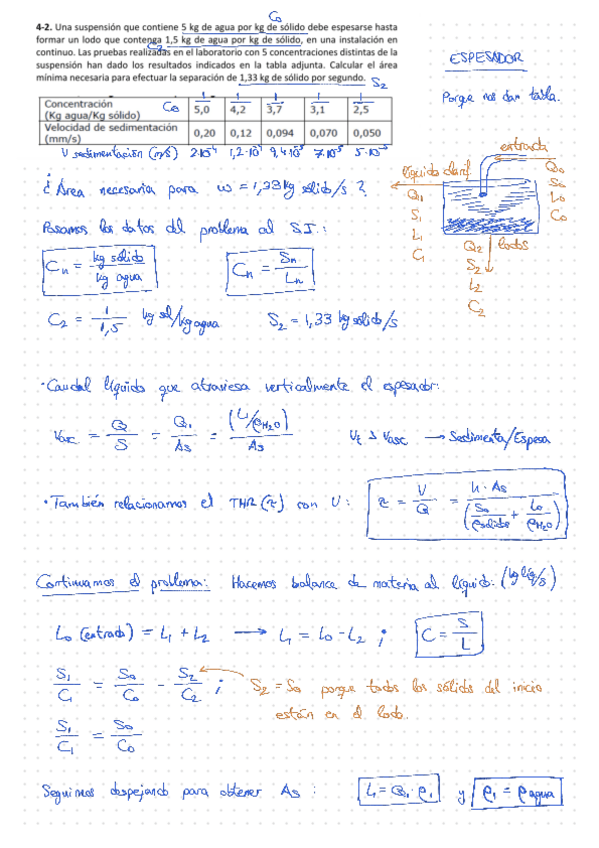 4-2. Una suspensión que contiene 5 kg de agua por kg de sólido debe espesarse hasta
formar un lodo que contenga 1,5 kg de agua por kg de sólido, en una instalación en
continuo. Las pruebas realizadas en el laboratorio con 5 concentraciones distintas de la
suspensión han dado los resultados indicados en la tabla adjunta. Calcular el área
mínima necesaria para efectuar la separación de 1,33 kg de sólido por segundo.
C₀
C₂
S₂
ESPESADOR
Porque nos dan tabla.
Concentración (Kg agua/Kg sólido) C₀ 5,0 4,2 3,7 3,1 2,5
Velocidad de sedimentación (mm/s) 0,20 0,12 0,094 0,070 0,050
V sedimentación (m/s) 2·10⁻⁴ 1,2·10⁻⁴ 9,4·10⁻⁵ 7·10⁻⁵ 5·10⁻⁵
entrada
Q₀
S₀
L₀
C₀
líquido clarif.
Q₁
S₁
L₁
C₁
Q₂ lodos
S₂
L₂
C₂
¿Área necesaria para ω = 1,33 kg sólido/s?
Pasamos los datos del problema al S.I.:
Cₙ = kg sólido / kg agua
Cₙ = Sₙ / Lₙ
C₂ = 1/1,5 kg sol/kg agua
S₂ = 1,33 kg sólido/s
· Caudal líquido que atraviesa verticalmente el espesador:
Vasc = Q/S = Q₁/As = (L₁/ρH₂O)/As
Vt > Vasc → Sedimenta/Espesa
· También relacionamos el THR (τ) con V:
τ = V/Q = h·As / (S₀/ρsólidos + L₀/ρH₂O)
Continuamos el problema: Hacemos balance de materia al líquido: (kg líq/s)
L₀ (entrada) = L₁ + L₂ → L₁ = L₀ - L₂ ; C = S/L
S₁/C₁ = S₀/C₀ - S₂/C₂ ; S₂ = S₀ porque todos los sólidos del inicio
están en el lodo.
S₁/C₁ = S₀/C₀
Seguimos despejando para obtener As : L₁ = Q₁·ρ₁ y ρ₁ = ρagua